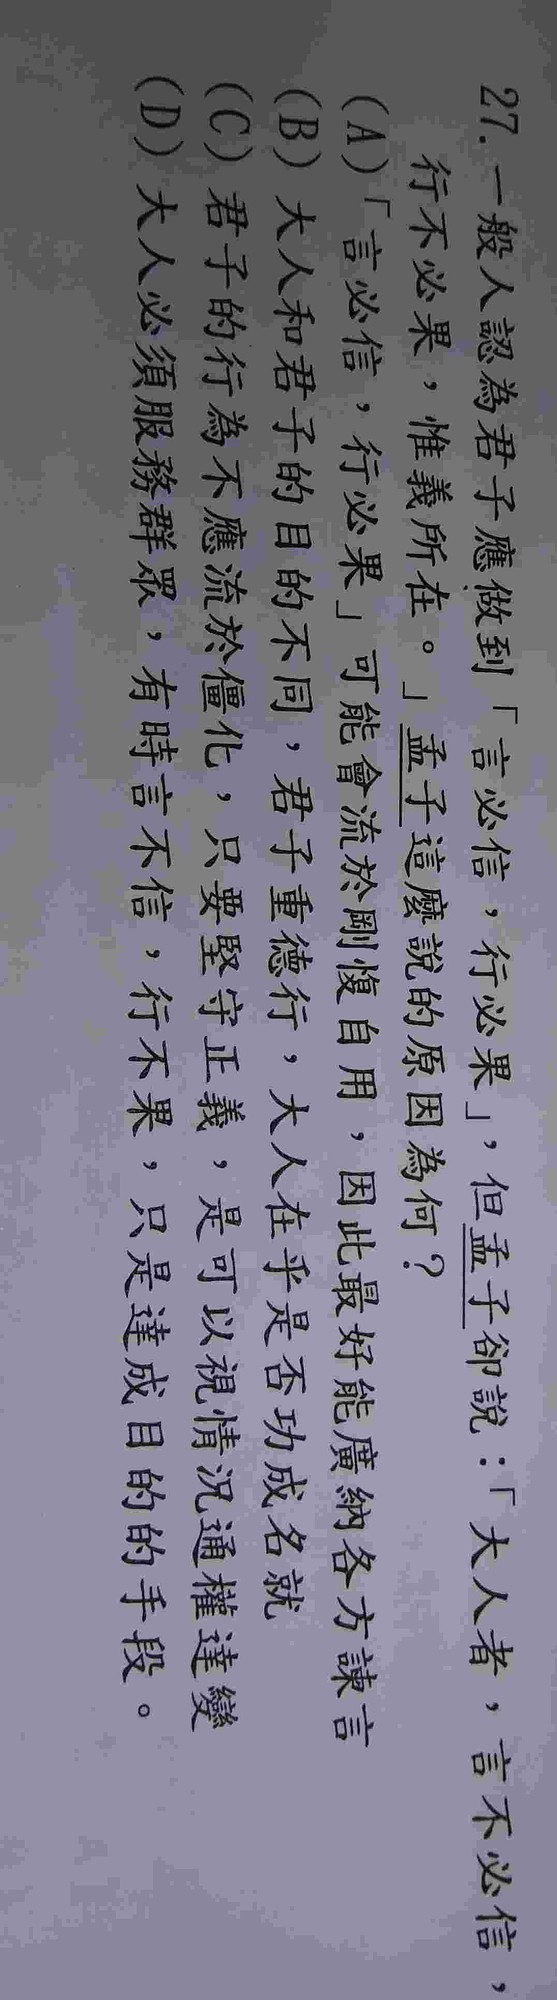 27. 一般人認為君子應做到「言必信，行必果」，但孟子卻說：「大人者，言不必信，
行不必果，惟義所在。」孟子這麼說的原因為何？
(A)「言必信，行必果」可能會流於剛愎自用，因此最好能廣納各方諫言
(B) 大人和君子的目的不同，君子重德行，大人在乎是否功成名就
(C) 君子的行為不應流於僵化，只要堅守正義，是可以視情況通權達變
(D) 大人必須服務群眾，有時言不信，行不果，只是達成目的的手段。